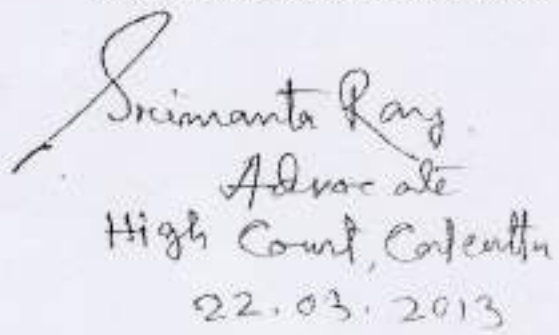 Srimanta Ray
Advocate
High Court, Calcutta
22.03.2013